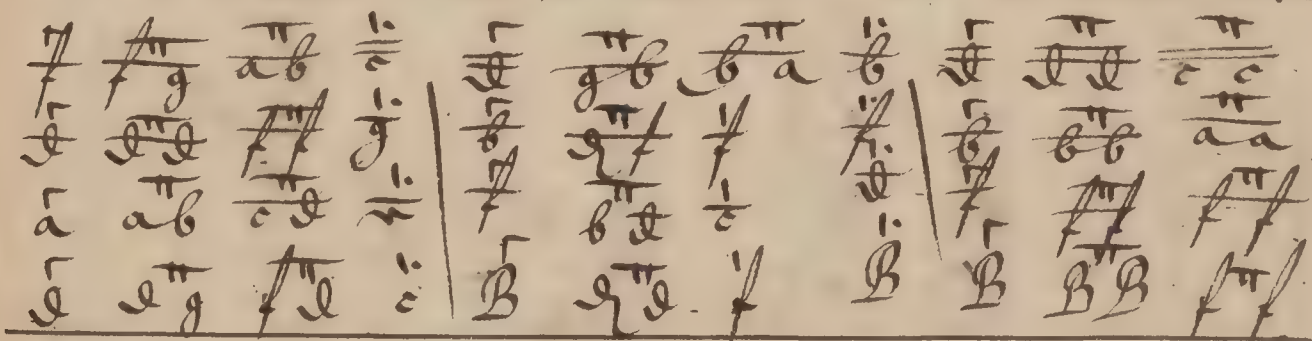 f f g a b c d g b b a b d d d c c
d d d f f g b f f f b b b a a
a a b c d f b d c d f f f f f
d d g f d c B d f B B B B f f